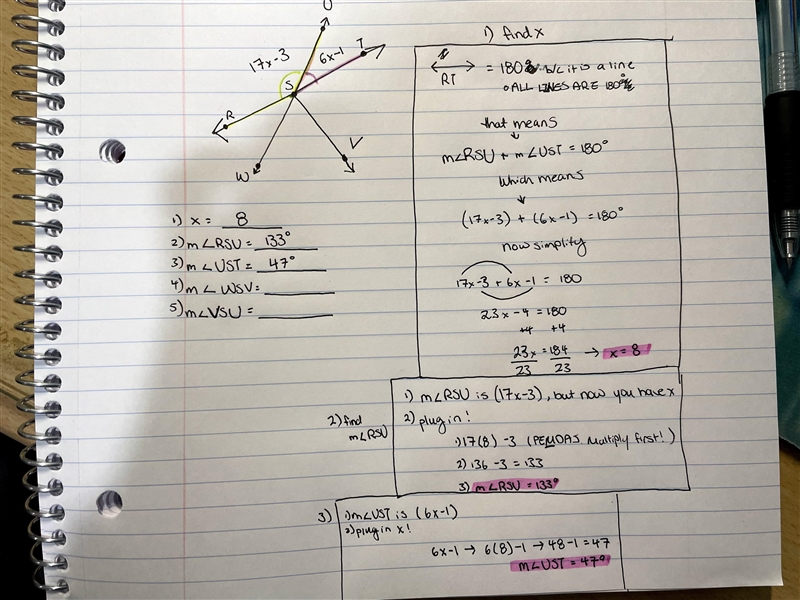 U
17x-3
6x-1
T
S
R
W
V
1) x = 8
2) m∠RSU = 133°
3) m∠UST = 47°
4) m∠WSV =
5) m∠VSU =
1) find x
RT = 180° b/c it is a line
ALL LINES ARE 180°
that means
m∠RSU + m∠UST = 180°
Which means
(17x-3) + (6x-1) = 180°
now simplify
17x-3 + 6x-1 = 180
23x - 4 = 180
+4 +4
23x = 184 → x = 8
23 23
2) find
m∠RSU
1) m∠RSU is (17x-3), but now you have x
2) plug in!
1) 17(8) - 3 (PEMDAS Multiply first!)
2) 136 - 3 = 133
3) m∠RSU = 133°
3)
1) m∠UST is (6x-1)
2) plug in x!
6x-1 → 6(8)-1 → 48-1 = 47
m∠UST = 47°